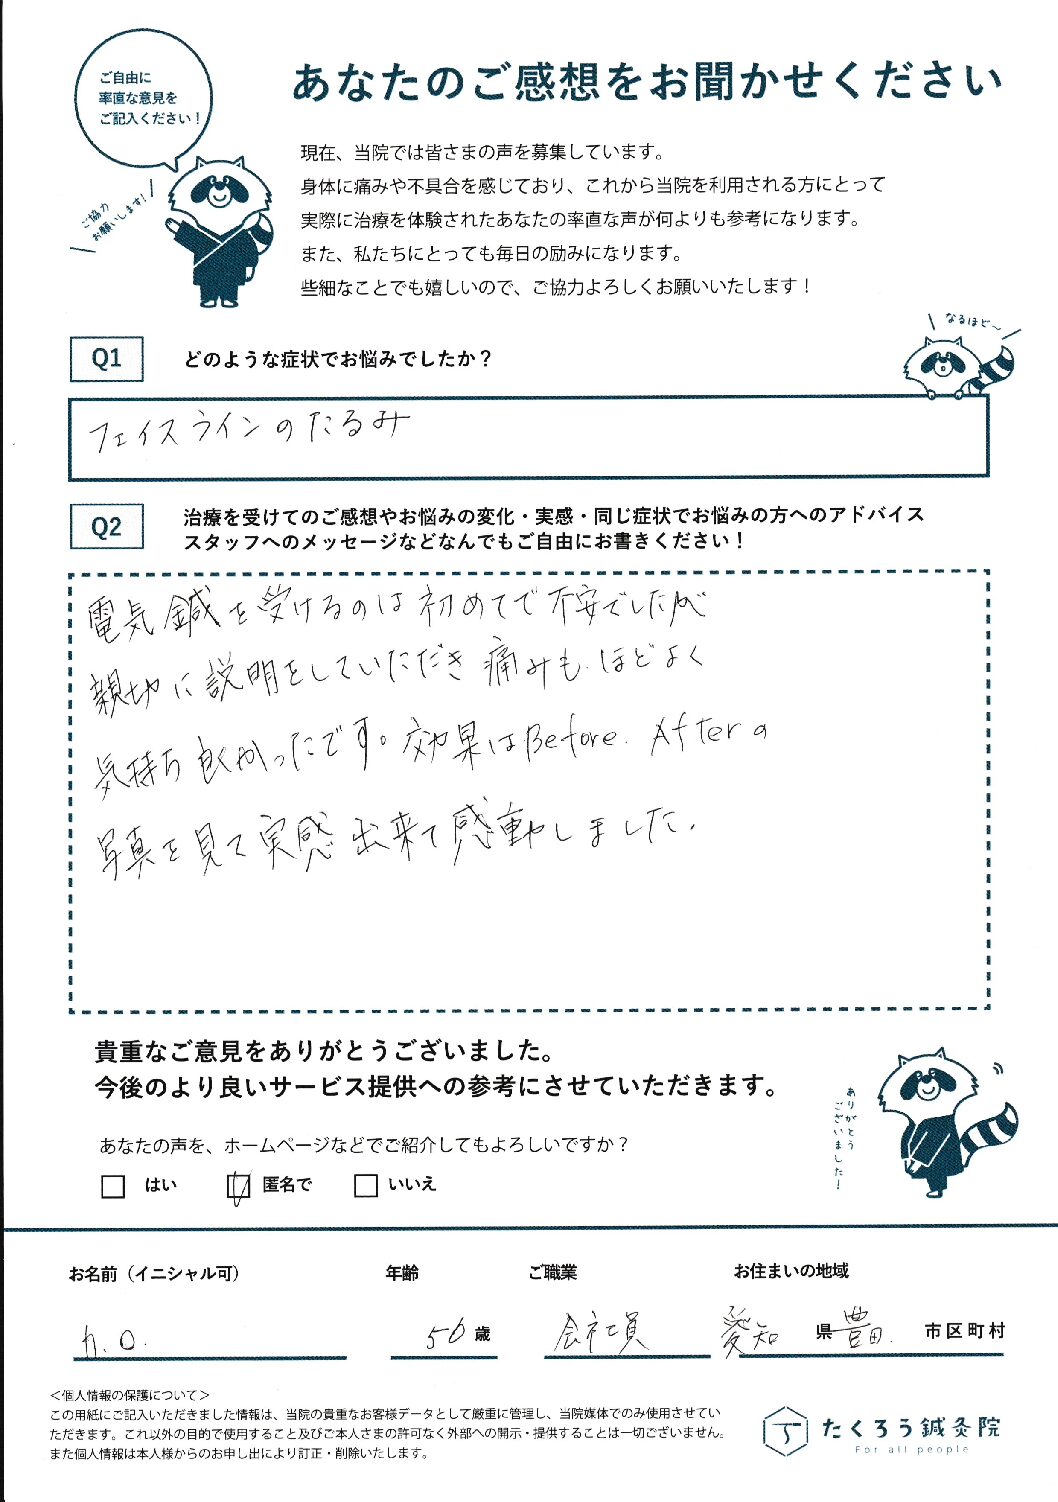 ご自由に
率直な意見を
ご記入ください！
あなたのご感想をお聞かせください
ご協力
お願いします！
現在、当院では皆さまの声を募集しています。
身体に痛みや不具合を感じており、これから当院を利用される方にとって
実際に治療を体験されたあなたの率直な声が何よりも参考になります。
また、私たちにとっても毎日の励みになります。
些細なことでも嬉しいので、ご協力よろしくお願いいたします！
なるほど〜
Q1 どのような症状でお悩みでしたか？
フェイスラインのたるみ
Q2 治療を受けてのご感想やお悩みの変化・実感・同じ症状でお悩みの方へのアドバイス
スタッフへのメッセージなどなんでもご自由にお書きください！
電気鍼を受けるのは初めてで不安でしたが
親切に説明をしていただき痛みも、ほどよく
気持ち良かったです。効果はBefore. Afterの
写真を見て実感出来て感動しました.
貴重なご意見をありがとうございました。
今後のより良いサービス提供への参考にさせていただきます。
ありがとう
ございました！
あなたの声を、ホームページなどでご紹介してもよろしいですか？
はい 匿名で いいえ
お名前（イニシャル可） 年齢 ご職業 お住まいの地域
n.o. 56 歳 会社員 愛知 県 豊田. 市区町村
＜個人情報の保護について＞
この用紙にご記入いただきました情報は、当院の貴重なお客様データとして厳重に管理し、当院媒体でのみ使用させてい
ただきます。これ以外の目的で使用すること及びご本人さまの許可なく外部への開示・提供することは一切ございません。
また個人情報は本人様からのお申し出により訂正・削除いたします。
たくろう鍼灸院
For all people